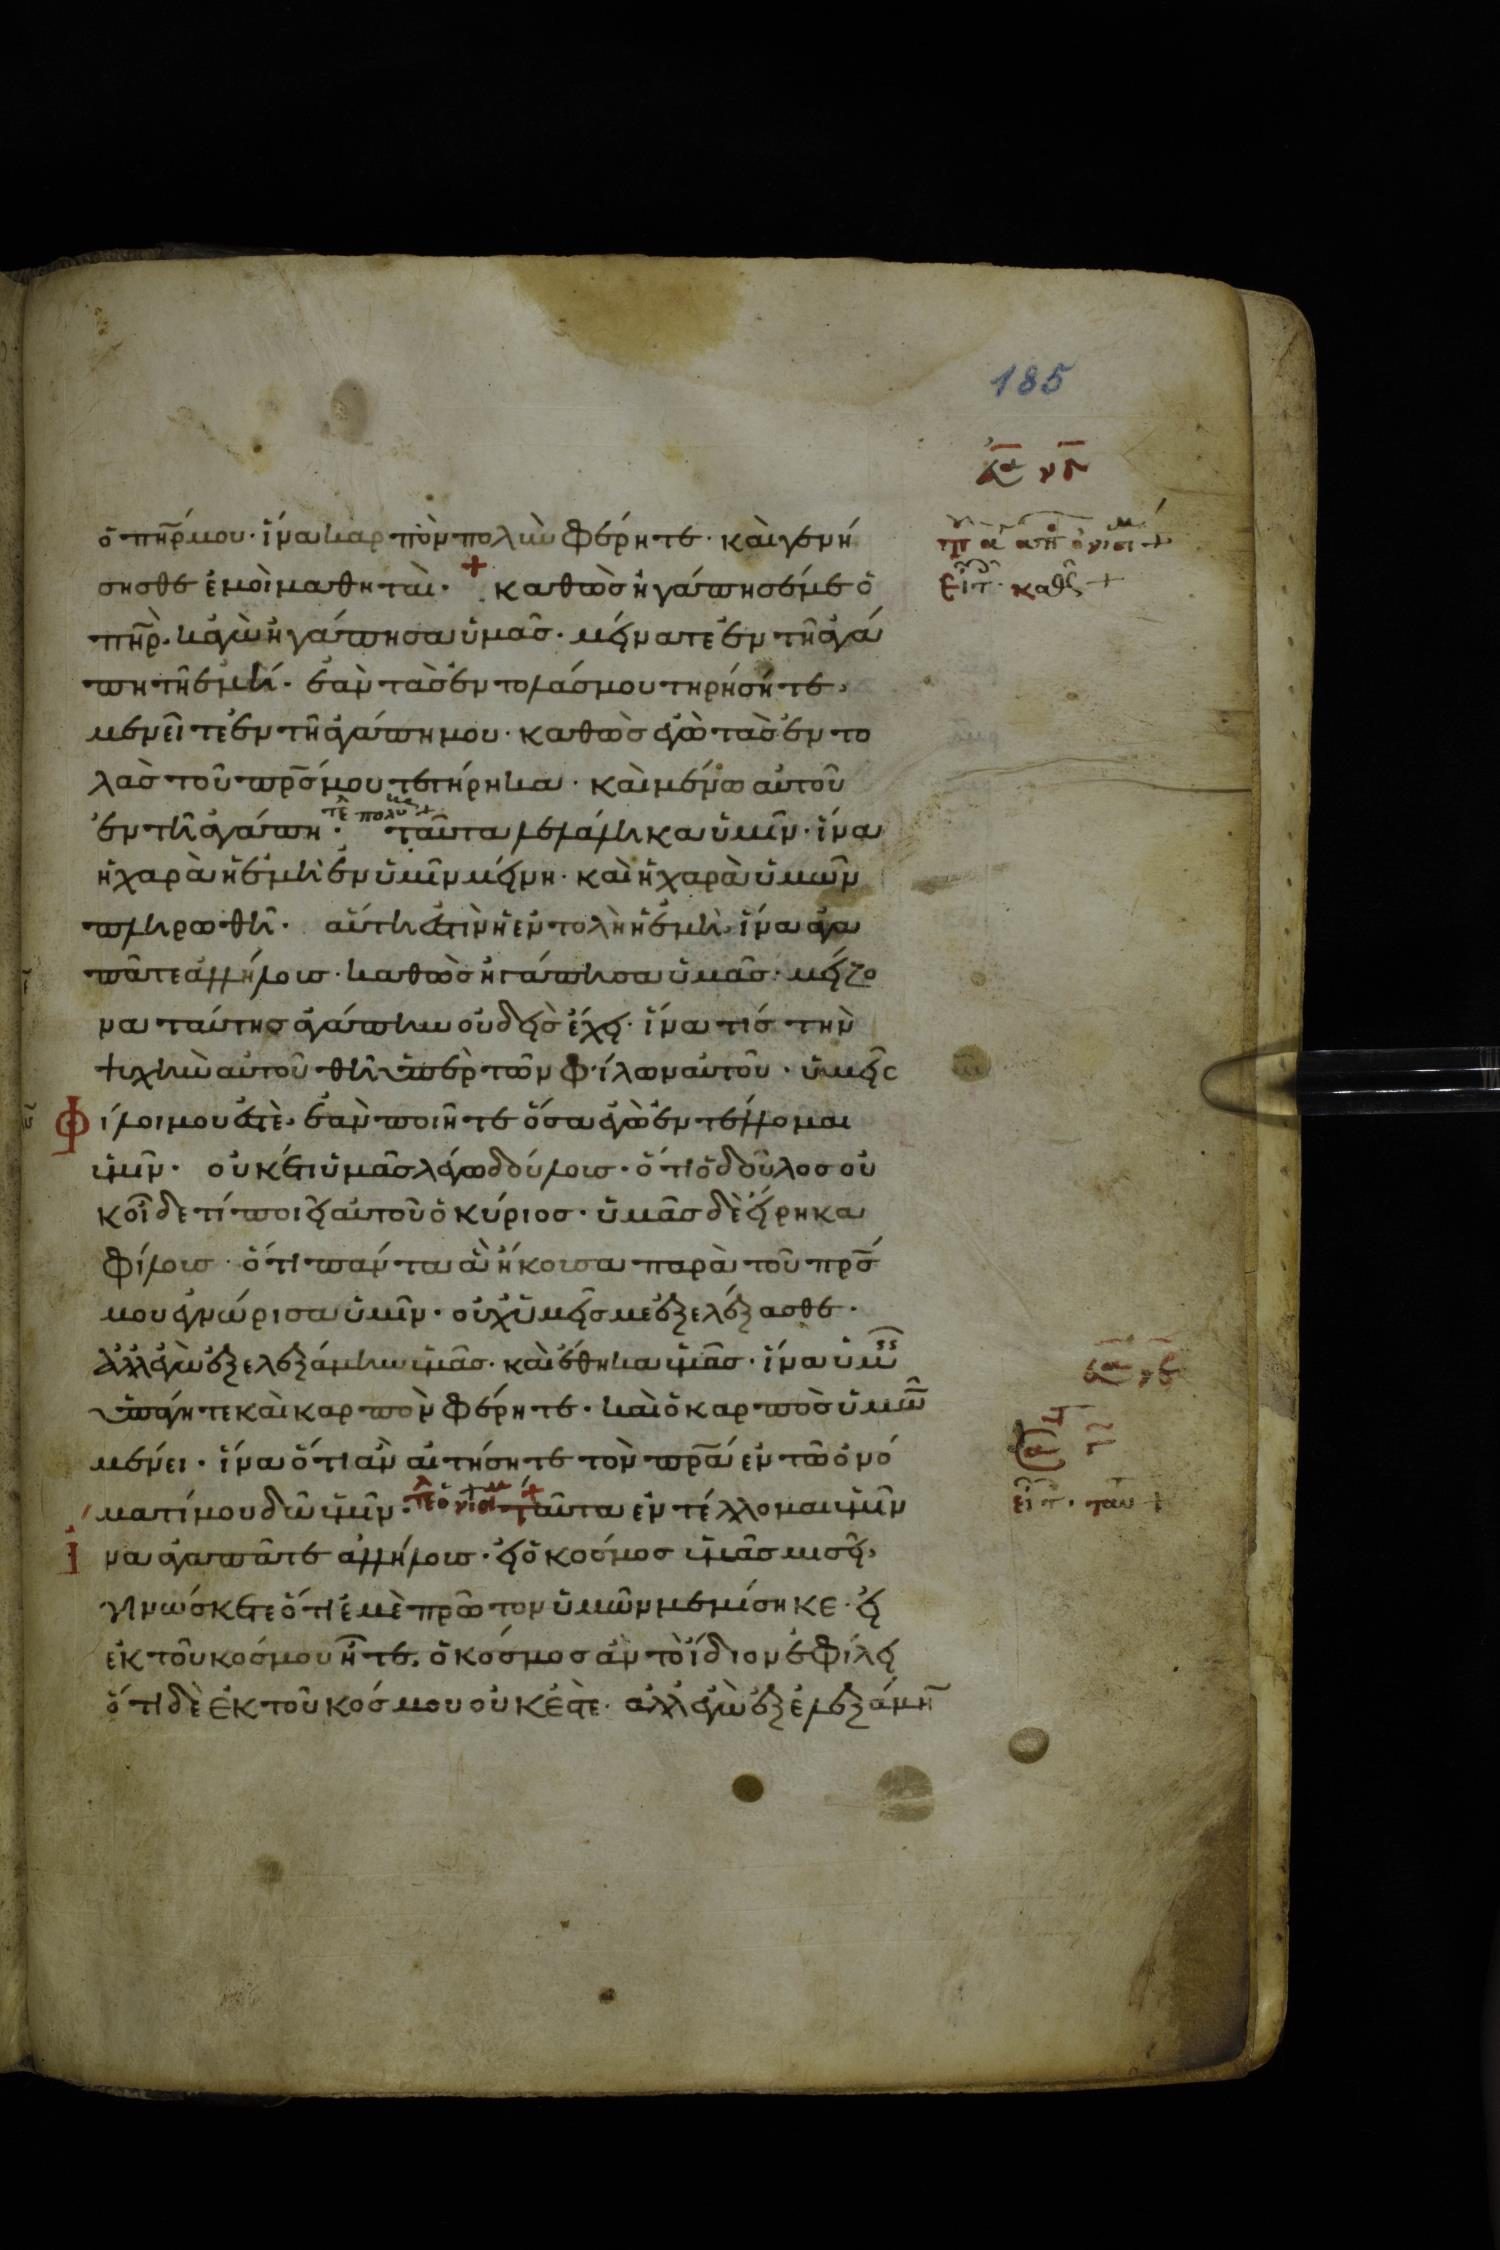 185
ὁ πη̅ρ μου· ἵνα καρπὸν πολὺν φέρητε· καὶ γενή
σησθε ἐμοὶ μαθηταὶ· + καθὼς ἠγάπησέ με ὁ
πη̅ρ· κἀγὼ ἠγάπησα ὑμᾶς· μείνατε ἐν τῆ ἀγά
πη τῆ ἐμῆ· ἐὰν τὰς ἐντολάς μου τηρήσητε,
μενεῖτε ἐν τῆ ἀγάπη μου· καθὼς ἐγὼ τὰς ἐντο
λὰς τοῦ πρ̅ς μου τετήρηκα· καὶ μένω αὐτοῦ
ἐν τῆ ἀγάπη· ταῦτα λελάληκα ὑμῖν· ἵνα
ἡ χαρὰ ἡ ἐμὴ ἐν ὑμῖν μείνη· καὶ ἡ χαρὰ ὑμῶν
πληρωθῆ· αὕτη ἐστὶν ἡ ἐντολὴ ἡ ἐμὴ· ἵνα ἀγα
πᾶτε ἀλλήλους· καθὼς ἠγάπησα ὑμᾶς· μείζο
να ταύτης ἀγάπην οὐδεὶς ἔχει· ἵνα τίς τὴν
ψυχὴν αὐτοῦ θῆ ὑπὲρ τῶν φίλων αὐτοῦ· ὑμεῖς
φίλοι μου ἐστὲ· ἐὰν ποιῆτε ὅσα ἐγὼ ἐντέλλομαι
ὑμῖν· οὐκέτι ὑμᾶς λέγω δούλους· ὅτι ὁ δοῦλος οὐ
κ οἶδε τί ποιεῖ αὐτοῦ ὁ κύριος· ὑμᾶς δὲ εἴρηκα
φίλους· ὅτι πάντα ἃ ἤκουσα παρὰ τοῦ πρ̅ς
μου ἐγνώρισα ὑμῖν· οὐχ ὑμεῖς με ἐξελέξασθε·
ἀλλ ἐγὼ ἐξελεξάμην ὑμᾶς· καὶ ἔθηκα ὑμᾶς· ἵνα ὑμεῖς
ὑπάγητε καὶ καρπὸν φέρητε· καὶ ὁ καρπὸς ὑμῶν
μένει· ἵνα ὅτι ἂν αἰτήσητε τὸν πρ̅α ἐν τῶ ὀνό
ματί μου δῶ ὑμῖν· + ταῦτα ἐντέλλομαι ὑμῖν
ἵνα ἀγαπᾶτε ἀλλήλους· εἰ ὁ κόσμος ὑμᾶς μισεῖ,
γινώσκετε ὅτι ἐμὲ πρῶτον ὑμῶν μεμίσηκε· εἰ
ἐκ τοῦ κόσμου ἦτε, ὁ κόσμος ἂν τὸ ἴδιον ἐφίλει
ὅτι δὲ ἐκ τοῦ κόσμου οὐκ ἐστὲ· ἀλλ ἐγὼ ἐξελεξάμην